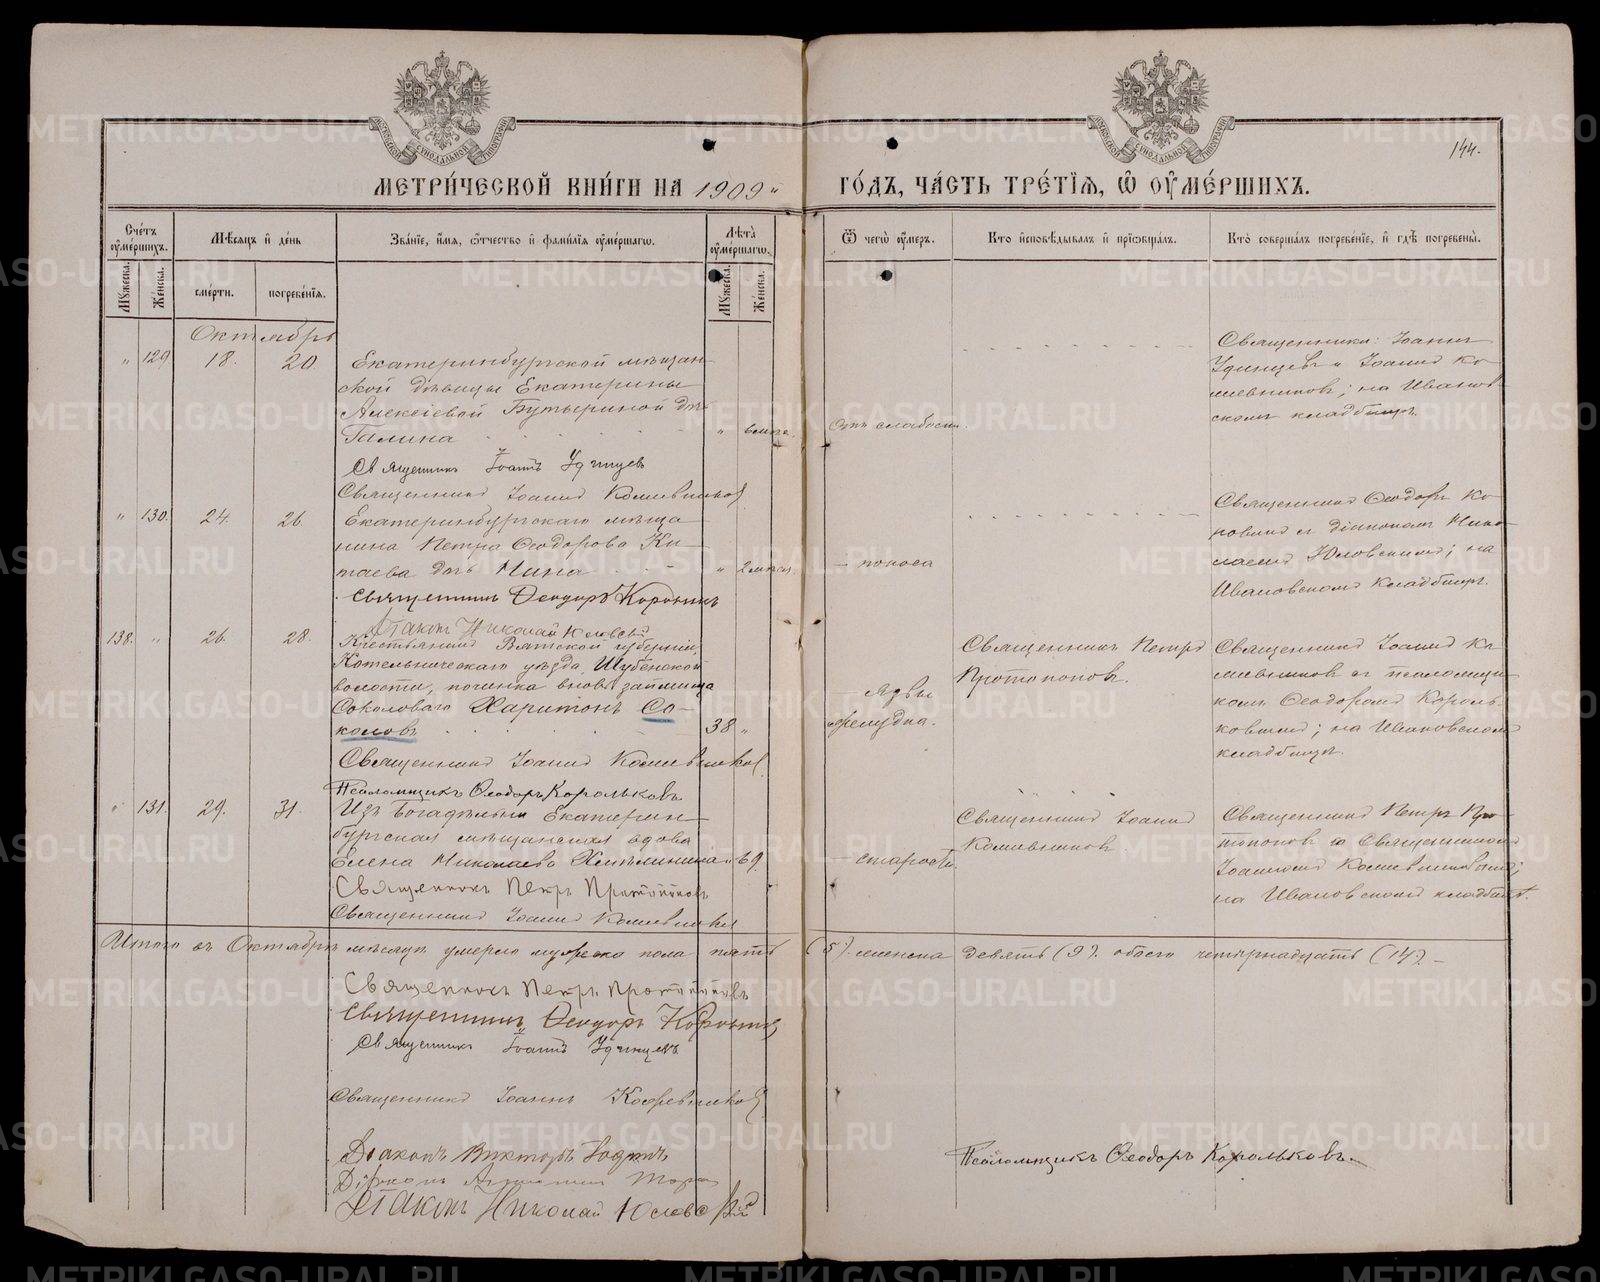 МОСКОВСКОЙ СУНОДАЛЬНОЙ ТИПОГРАФІИ
МОСКОВСКОЙ СУНОДАЛЬНОЙ ТИПОГРАФІИ
144.
МЕТРИ́ЧЕСКОЙ КНИ́ГИ НА 1909 ГО́ДЪ, ЧА́СТЬ ТРЕ́ТІѦ, Ѡ ОУМЕ́РШИХЪ.
Сче́тъ оуме́ршихъ.
Мѣсяцъ и де́нь
Зва́ніе, и́мя, о́тчество и фами́лія оуме́ршагѡ.
Лѣта̀ оуме́ршагѡ.
Ѿ чегѡ̀ оу́меръ.
Кто̀ исповѣ́дывалъ и пріѡбща́лъ.
Кто̀ соверша́лъ погребе́ніе, и гдѣ̀ погребены̀.
Му́жеска.
Же́нска.
сме́рти.
погребе́нія.
Му́жеска.
Же́нска.
Октябрь
" 129 18. 20
Екатеринбургской мѣщан-
ской дѣвицы Екатерины
Алексіевой Бутыриной дчь
Галина
"
Отъ слабости.
Священники: Іоаннъ
Удинцевъ и Іоаннъ Ко-
жевниковъ; на Иванов-
скомъ кладбищѣ.
Священникъ Іоаннъ Удинцевъ
Священникъ Іоаннъ Кожевниковъ
" 130. 24. 26.
Екатеринбургскаго мѣща-
нина Петра Ѳеодорова Ки-
таева дчь Нина
" 2 мѣся.
— поноса
Священникъ Ѳеодоръ Ко-
ровинъ съ діакономъ Нико-
лаемъ Юловскимъ; на
Ивановскомъ кладбищѣ.
Священникъ Ѳеодоръ Коровинъ
Діаконъ Николай Юловскій
138. " 26. 28.
Крестьянинъ Вятской губерніи,
Котельническаго уѣзда Шубенской
волости, починка вновь займища
Соколоваго Харитонъ Со-
коловъ
38 "
— язвы
желудка.
Священникъ Петръ
Протопоповъ.
Священникъ Іоаннъ Ко-
жевниковъ съ псаломщи-
комъ Ѳеодоромъ Король-
ковымъ; на Ивановскомъ
кладбищѣ.
Священникъ Іоаннъ Кожевниковъ
Псаломщикъ Ѳеодоръ Корольковъ
" 131. 29. 31.
Изъ богадѣльни Екатерин-
бургская мѣщанская вдова
Елена Николаева
69.
— старости.
Священникъ Іоаннъ
Кожевниковъ
Священникъ Петръ Про-
топоповъ со Священникомъ
Іоанномъ Кожевниковымъ;
на Ивановскомъ кладбищѣ.
Священникъ Петръ Протопоповъ
Священникъ Іоаннъ Кожевниковъ
Итого въ Октябрѣ мѣсяцѣ умерло мужеска пола пять (5). женска девять (9). обоего четырнадцать (14). —
Священникъ Петръ Протопоповъ
Священникъ Ѳеодоръ Коровинъ
Священникъ Іоаннъ Удинцевъ
Священникъ Іоаннъ Кожевниковъ
Діаконъ Викторъ
Діаконъ
Діаконъ Николай Юловскій
Псаломщикъ Ѳеодоръ Корольковъ.
METRIKI.GASO-URAL.RU